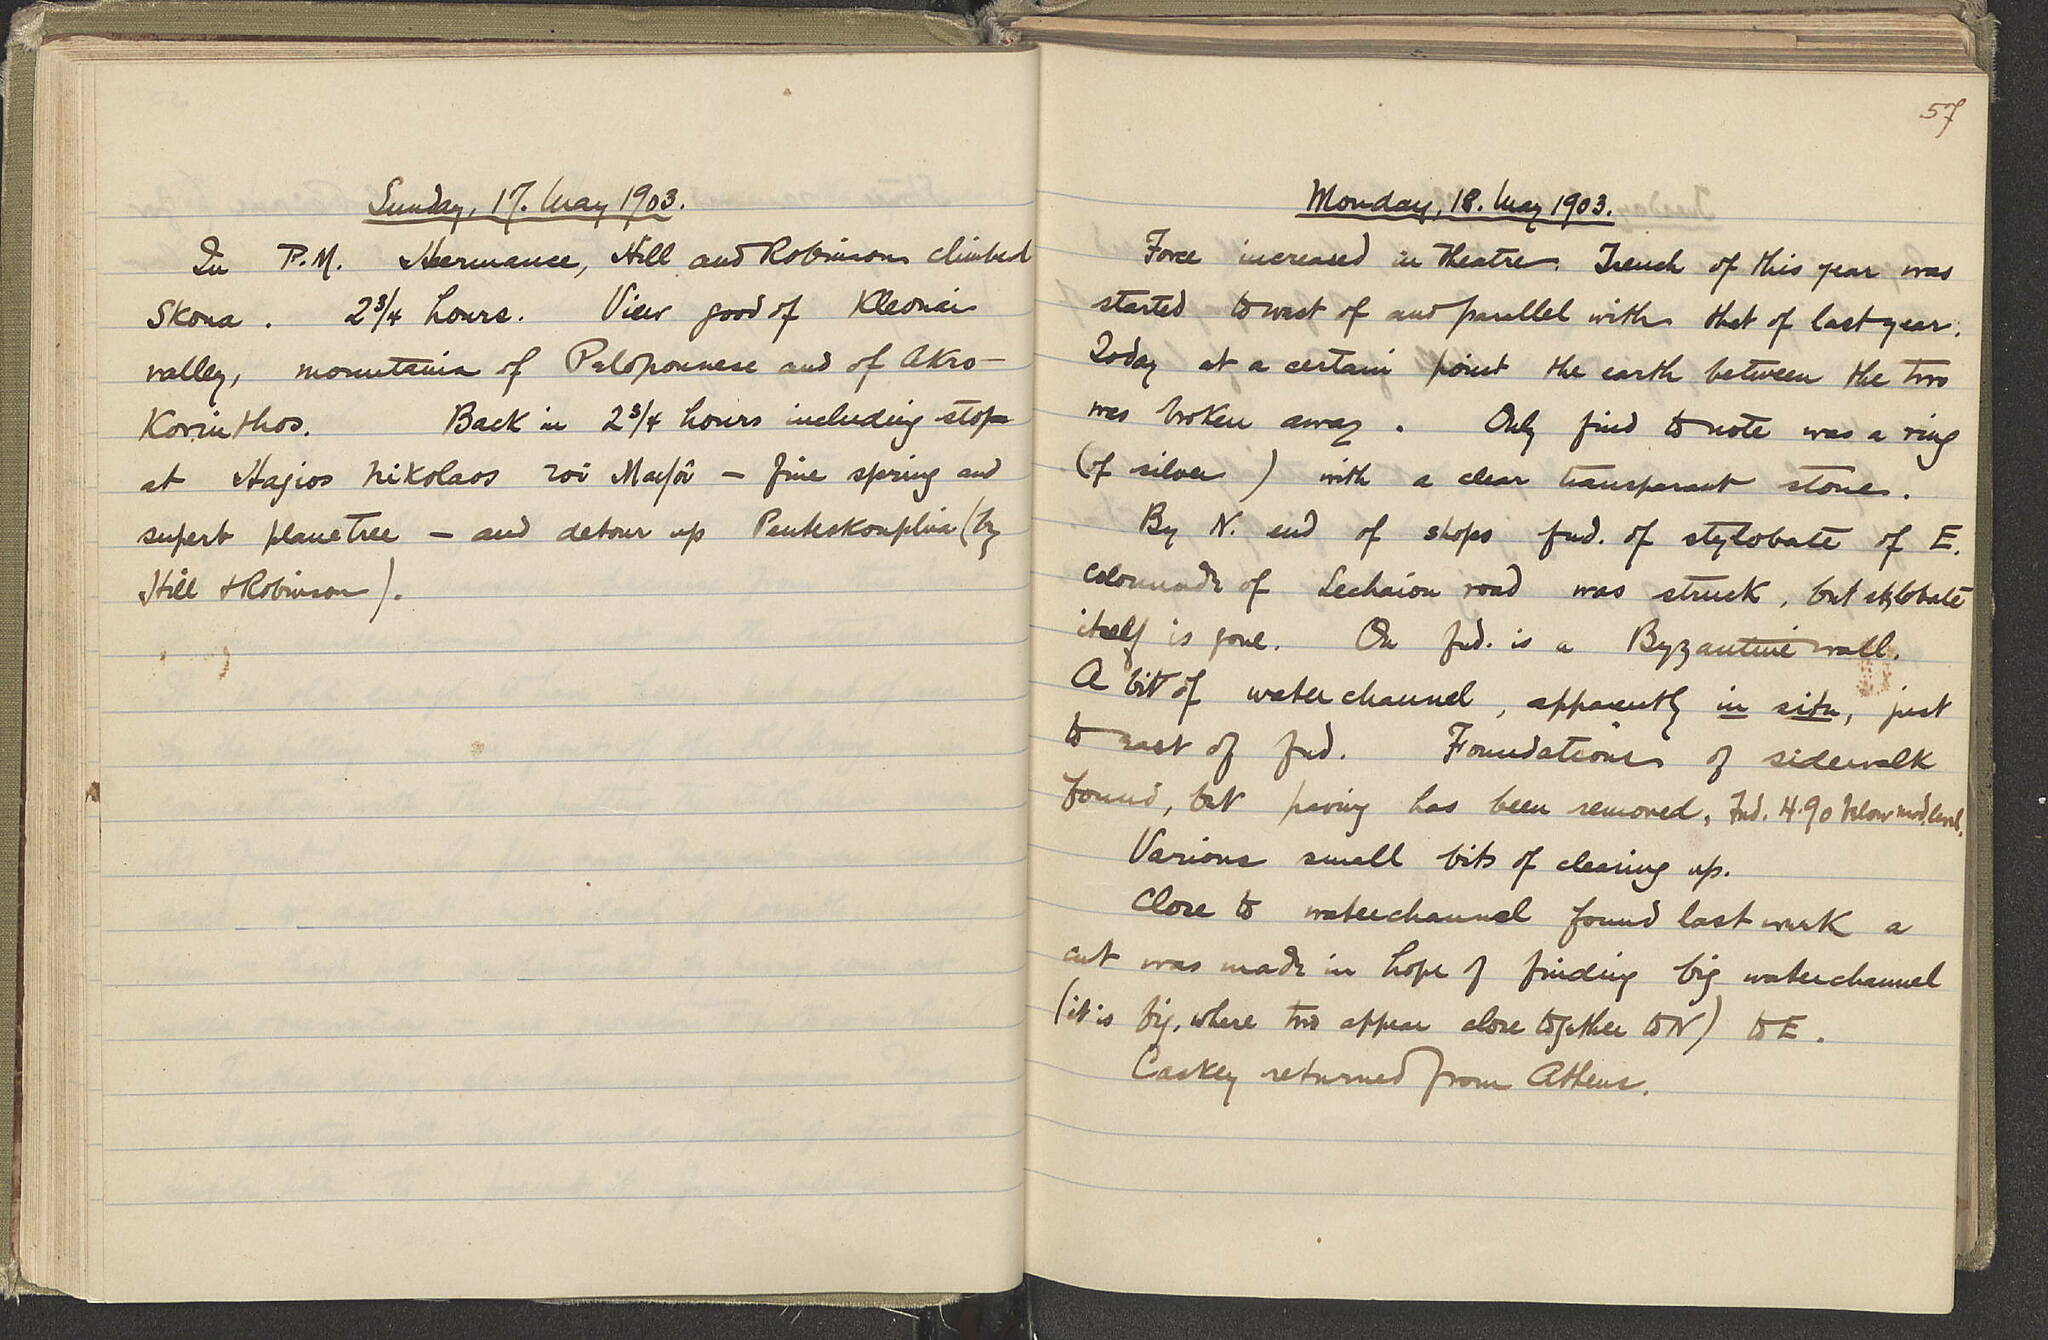 Sunday, 17. May 1903.
In P.M. Heermance, Hill and Robinson climbed
Skona. 2 3/4 hours. View good of Kleonai
valley, mountains of Peloponnese and of Akro-
Korinthos. Back in 2 3/4 hours including stop
at Hagios Nikolaos τοῦ
– fine spring and
superb planetree – and detour up Penteskouphia (by
Hill & Robinson).
57
Monday, 18. May 1903.
Force increased in theatre. Trench of this year was
started to west of and parallel with that of last year.
Today at a certain point the earth between the two
was broken away. Only find to note was a ring
(of silver) with a clear transparent stone.
By N. end of shops fnd. of stylobate of E.
colonnade of Lechaion road was struck, but stylobate
itself is gone. On fnd. is a Byzantine wall.
A bit of water channel, apparently in situ, just
to east of fnd. Foundations of sidewalk
found, but paving has been removed. Fnd. 4.90 below mod. level.
Various small bits of clearing up.
Close to waterchannel found last week a
cut was made in hope of finding big waterchannel
(it is big, where two appear close together to N) to E.
Caskey returned from Athens.